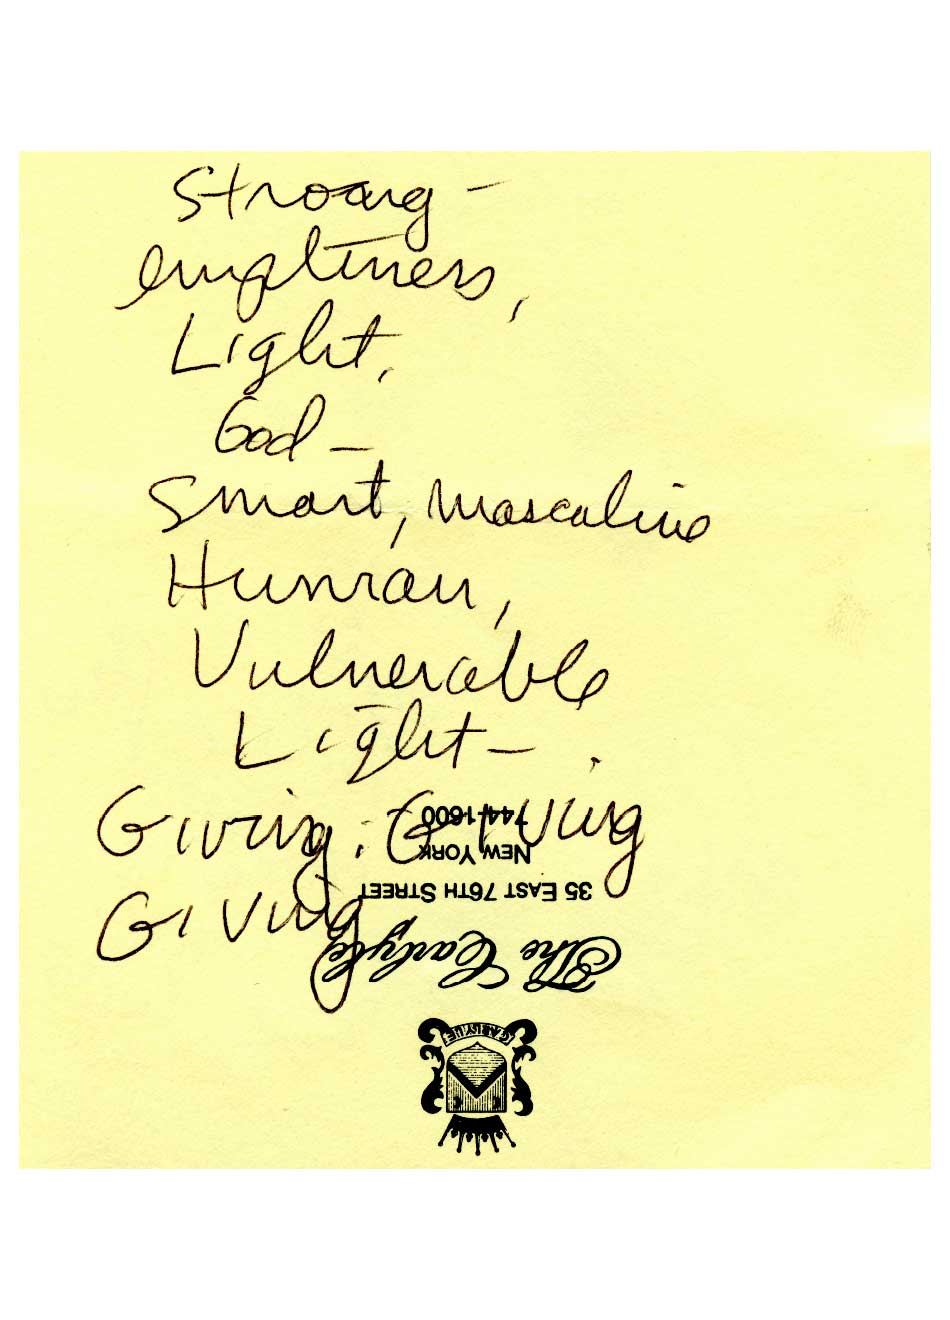 Stroong -
emptiness,
Light,
God -
Smart, masculine
Human,
Vulnerable
Light - .
Giving. Giving
Giving
The Carlyle
35 EAST 76TH STREET
NEW YORK
744-1600